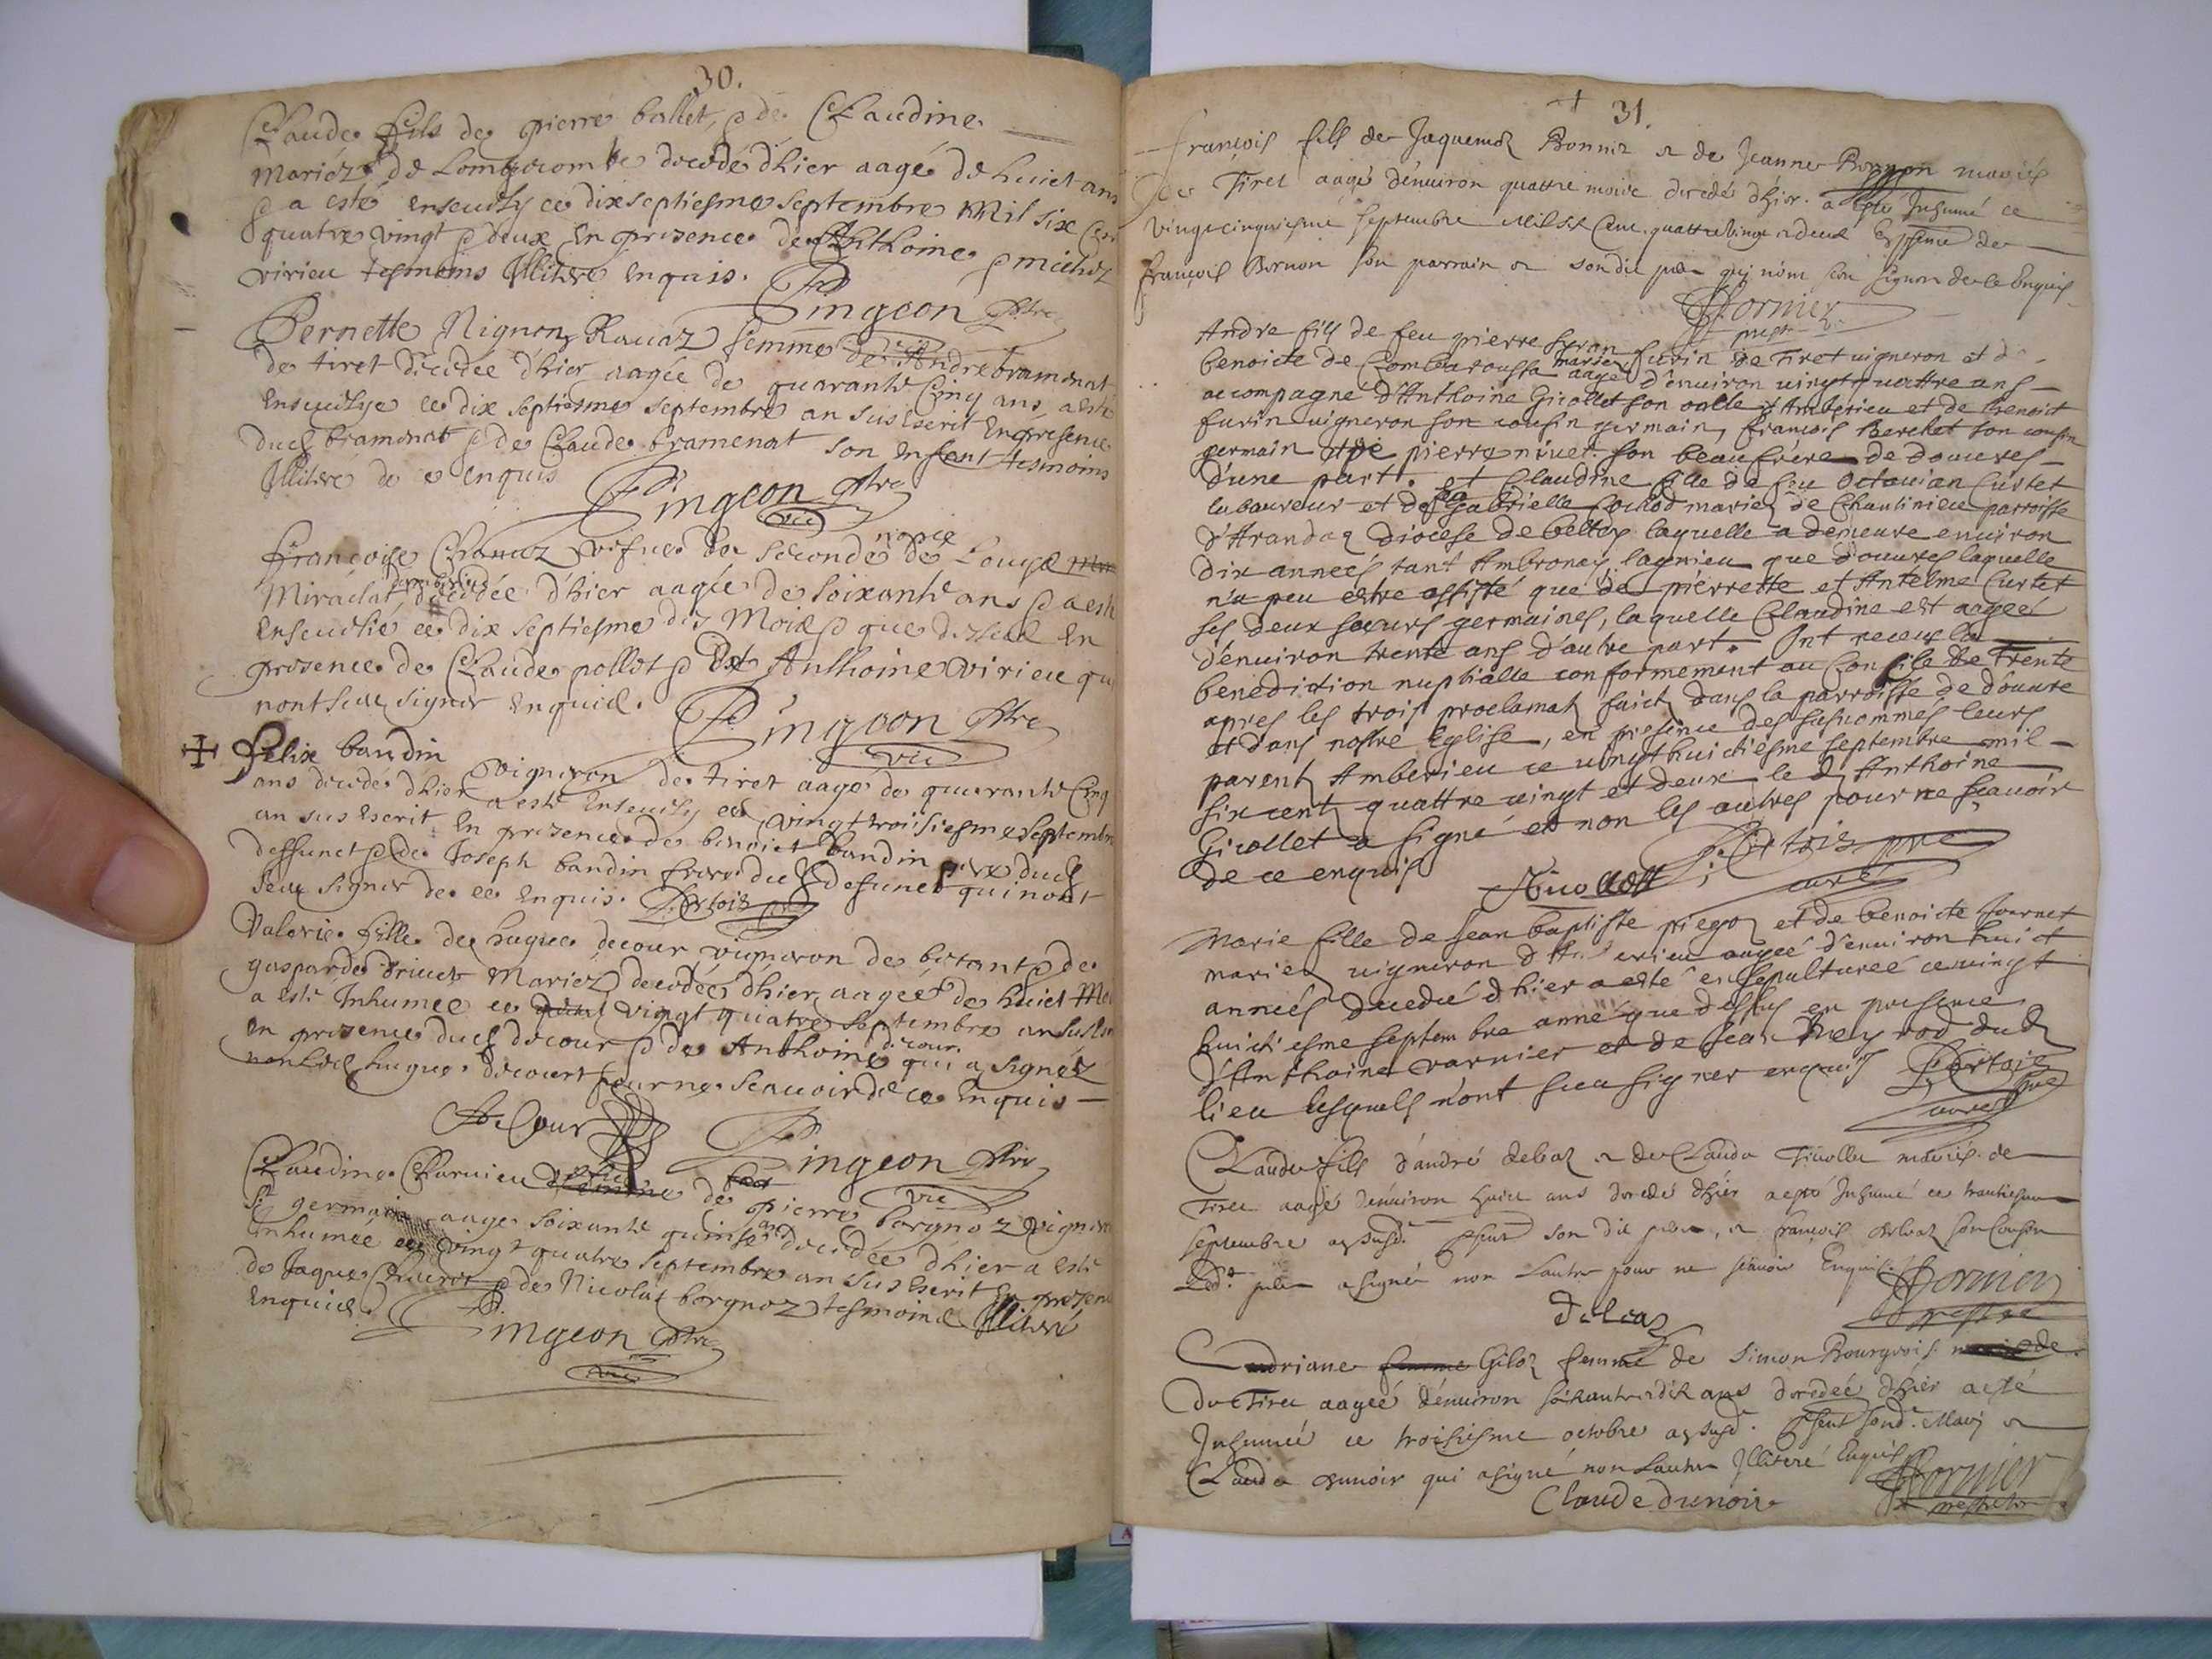 30.
Claude fils de pierre ballet, & de Claudine
Mariez de Longecombe decede dhier aagé de huict ans
& a esté ensevely ce dixseptiesme septembre Mil six Cen
quatre vingt & deux En presence de Anthoine & michel
virieu tesmoins Illitere enquis.
Pingeon ptre
vic
Pernette Nignon Ravaz femme de Andre bramenat
de tiret decedée d'hier aagée de quarante Cinq ans, a esté
Ensevelye ce dix septiesme septembre an susescrit En presence
dud bramenat & de Claude bramenat son enfent tesmoins
Illiteré de ce enquis
Pingeon ptre
vic
françoise Chanaz vefue en seconde nopce de Louys
Miraclat d'amberieu decedée d'hier aagée de soixante ans & a esté
Ensevelie ce dix septiesme des Mois & que dessus En
presence de Claude pollet & Anthoine virieu qui
nont seu signer enquis.
Pingeon ptre
vic
felix baudin
vigneron de tiret aagé de quarante Cinq
ans decede dhier a esté Ensevely ce vingt troisiesme septembre
an sus escrit En presence de benoict baudin pere dud
deffunct & de Joseph baudin frere dud defunct qui nont
seu signer de ce enquis. Pertois
Valerie fille de hugue decour vigneron de bettant & de
gasparde Mariez decedée dhier aagée de huict Mois
a esté Inhumée ce vingt quatre septembre an
En presence dud decour & de Anthoine decour qui a signéz
non led hugue decourt pour ne scavoir de ce enquis
DeCour
Pingeon ptre
vic
Claudine Charvieu de pierre borgnoz vigneron
St germain aage soixante quinse ans decedée dhier a esté
inhumée ce vingt quatre septembre an sus escrit En presence
de Jaque & de Nicolas borgnoz tesmoins Illiteré
enquis.
Pingeon ptre
vic
31.
françois fils de Jaquemoz Bonnier & de Jeanne mariés
de Tiret aagé d'environ quattre mois decedé d'hier. a esté Inhumé ce
vingtcinquiesme septembre mil six Cent quattrevingt & deux En presence de
françois Bernon son parrain & son dit pere qui nont seu signer de ce Enquis
Dornier
prestre
Andre fils de feu pierre furin de Tiret vigneron et de
benoicte de Combarousse mariez aagé d'environ vingtquattre ans
accompagné d'Anthoine Girollet son oncle d'Amberieu et de benoict
furin vigneron son cousin germain, françois Berchet son cousin
germain et de pierre nivet son beaufrere de douvres
d'une part. et Claudine fille de feu Octavian Curtet
laboureur et de Gabrielle Cochod mariez de Chantinieu parroisse
d'Arandaz Diocese de belley laquelle a demeure environ
dix années tant Ambronay, lagnieu que douvres laquelle
n'a peu estre assisté que de pierrette et Antelme Curtet
ses deux soeurs germaines, laquelle Claudine est aagée
d'environ trente ans d'autre part. Ont receus la
benediction nuptialle conformement au Concile de Trente
apres les trois proclamats faicts dans la parroisse de douvre
et dans nostre Eglise, en presence des susnommés leurs
parents Amberieu ce vingthuictiesme septembre mil
six cents quattre vingt et deux led Anthoine
Girollet a signé et non les autres pour ne sçavoir
de ce enquis
Girollet
Pertois pre
curé
Marie fille de Jean baptiste piegoz et de benoicte fournet
mariez vigneron d'Amberieu aagée d'environ huict
années decedé d'hier a esté ensepulturée ce vingt
huictiesme septembre anné que dessus en presence
d'Anthoine varnier et de Jean dud
lieu lesquels n'ont sceu signer enquis
Pertois pre
curé
Claude fils d'andré deleaz & de Clauda Tirollet mariés de
Tiret aagé denviron huict ans decedé d'hier a esté Inhumé ce trantiesme
septembre an susd. present son dit pere, & françois deleaz son Cousin
Led. pere a signé non Lautre pour ne scavoir Enquis.
deleaz
Dornier
prestre
Andriane Giloz femme de Simon Bourgeois
de Tiret aagée denviron soixante & dix ans decedée d'hier a esté
Inhumée ce troisiesme octobre an susd. present sond. Mary &
Claude dunoir qui a signé non Lautre Illiteré Enquis
Claude dunoir
Dornier
prestre